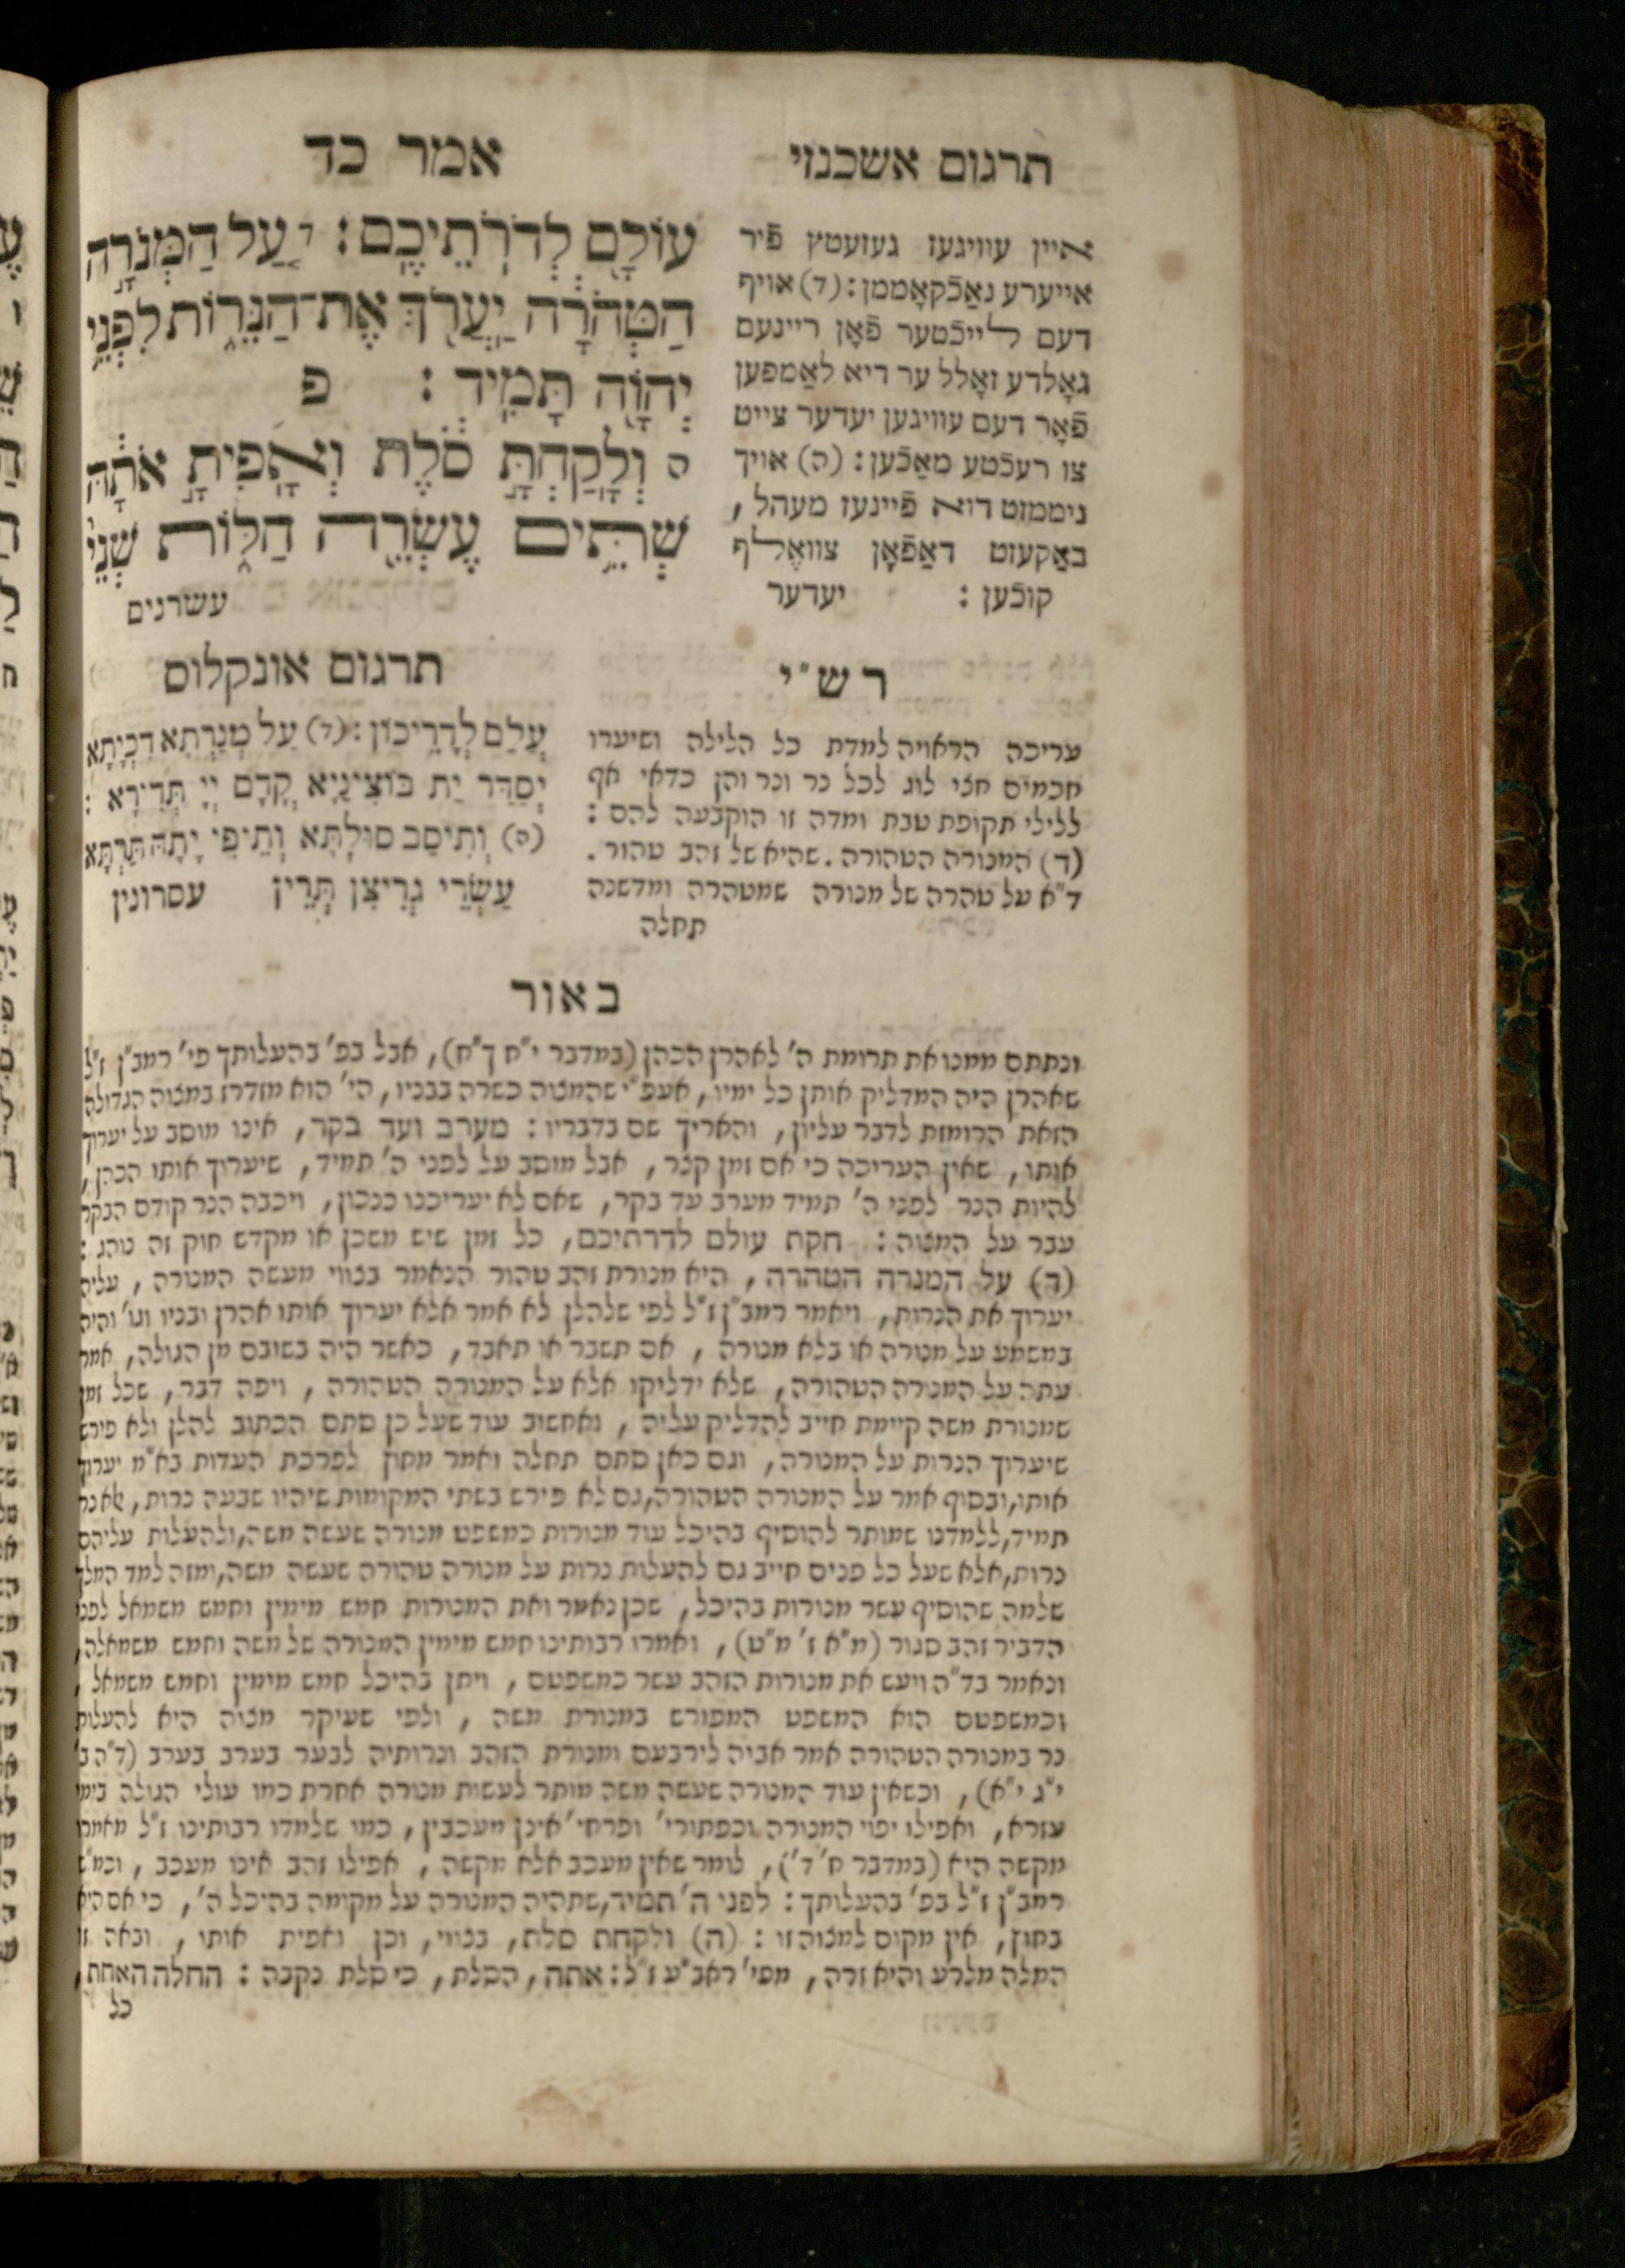 תרגום אשכנזי
אמר כד
איין עוויגעז געזעטץ פֿיר
אייערע נאַכֿקאָממן: (ד) אויף
דעם לייכֿטער פֿאָן ריינעם
גאָלדע זאָלל ער דיא לאַמפען
פֿאָר דעם עוויגען יעדער צייט
צו רעכֿטע מאַכֿען: (ה) אויך
ניממזט דוא פֿיינעז מעהל,
באַקעזט דאַפֿאָן צוואֶלף
קוכֿען: יעדער
עוֹלָ֖ם לְדֹרֹֽתֵיכֶֽם: ד עַ֚ל הַמְּנֹרָ֣ה
הַטְּהֹרָ֔ה יַעֲרֹ֖ךְ אֶת־הַנֵּר֑וֹת לִפְנֵ֥י
יְהוָ֖ה תָּמִֽיד: פ
ה וְלָקַחְתָּ֣ סֹ֔לֶת וְאָֽפִיתָ֣ אֹתָ֔הּ
שְׁתֵּ֥ים עֶשְׂרֵ֖ה חַלּ֑וֹת שְׁנֵי֙
עשרנים
רש"י
עריכה הראויה למדת כל הלילה ושיערו
חכמים חצי לוג לכל נר ונר והן כדאי אף
ללילי תקופת טבת ומדה זו הוקבעה להם:
(ד) המנורה הטהורה. שהיא של זהב טהור.
ד"א על טהרה של מנורה שמטהרה ומדשנה
תחלה
תרגום אונקלוס
עֲלַם לְדָרֵיכוֹן: (ד) עַל מְנַרְתָא דְכִיתָא
יְסַדַּר יַת בּוֹצִינַיָא קֳדָם יְיָ תְּדִירָא:
(ה) וְתִיסַב סוּלְתָּא וְתֵיפֵי יָתָהּ תַּרְתָּא
עַשְׂרֵי גְרִיצָן תְּרֵין עסרונין
באור
ונתתם ממנו את תרומת ה' לאהרן הכהן (במדבר י"ח כ"ח), אבל בפ' בהעלותך פי' רמב"ן ז"ל
שאהרן היה המדליק אותן כל ימיו, אעפ"י שהמצוה כשרה בבניו, הי' הוא מזדרז במצוה הגדולה
הזאת הרומזת לדבר עליון, והאריך שם בדבריו: מערב ועד בקר, אינו מוסב על יערוך
אותו, שאין העריכה כי אם זמן קצר, אבל מוסב על לפני ה' תמיד, שיערוך אותו הכהן,
להיות הנר לפני ה' תמיד מערב עד בקר, שאם לא יעריכנו כנכון, ויכבה הנר קודם הבקר
עבר על המצוה: חקת עולם לדרתיכם, כל זמן שיש משכן או מקדש חוק זה נוהג:
(ד) על המנרה הטהרה, היא מנורת זהב טהור הנאמר בצווי מעשה המנורה, עליה
יערוך את הנרות, ויאמר רמב"ן ז"ל לפי שלהלן לא אמר אלא יערוך אותו אהרן ובניו וגו' והיה
במשמע על מנורה או בלא מנורה, אם תשבר או תאבד, כאשר היה בשובם מן הגולה, אמר
עתה על המנורה הטהורה, שלא ידליקו אלא על המנורה הטהורה, ויפה דבר, שכל זמן
שמנורת משה קיימת חייב להדליק עליה, ואחשוב עוד שעל כן סתם הכתוב להלן ולא פירש
שיערוך הנרות על המנורה, וגם כאן סתם תחלה ואמר מחוץ לפרכת העדות בא"מ יערוך
אותו, ובסוף אמר על המנורה הטהורה, גם לא פירש בשתי המקומות שיהיו שבעה נרות,
תמיד, ללמדנו שמותר להוסיף בהיכל עוד מנורות כמשפט מנורה שעשה משה, ולהעלות עליהם
נרות, אלא שעל כל פנים חייב גם להעלות נרות על מנורה טהורה שעשה משה, ומזה למד המלך
שלמה שהוסיף עשר מנורות בהיכל, שכן נאמר ואת המנורות חמש מימין וחמש משמאל לפני
הדביר זהב סגור (מ"א ז' מ"ט), ואמרו רבותינו חמש מימין המנורה של משה וחמש משמאלה,
ונאמר בד"ה ויעש את מנורות הזהב עשר כמשפטם, ויתן בהיכל חמש מימין וחמש משמאל,
וכמשפטם הוא המשפט המפורש במנורת משה, ולפי שעיקר מצוה היא להעלות
נר במנורה הטהורה אמר אביה לירבעם ומנורת הזהב ונרותיה לבער בערב בערב (ד"ה ב'
י"ג י"א), וכשאין עוד המנורה שעשה משה מותר לעשות מנורה אחרת כמו עולי הגולה בימי
עזרא, ואפילו יפוי המנורה וכפתורי' ופרחי' אינן מעכבין, כמו שלמדו רבותינו ז"ל מאמרו
מקשה היא (במדבר ח' ד'), לומר שאין מעכב אלא מקשה, אפילו זהב אינו מעכב,
רמב"ן ז"ל בפ' בהעלותך: לפני ה' תמיד, שתהיה המנורה על מקומה בהיכל ה', כי אם היא
בחוץ, אין מקום למצוה זו: (ה) ולקחת סלת, בצווי, וכן ואפית אותו, ובאה זו
המלה מלרע והיא זרה, מפי' ראב"ע ז"ל: אתה, הסלת, כי סלת נקבה: החלה האחת,
כל